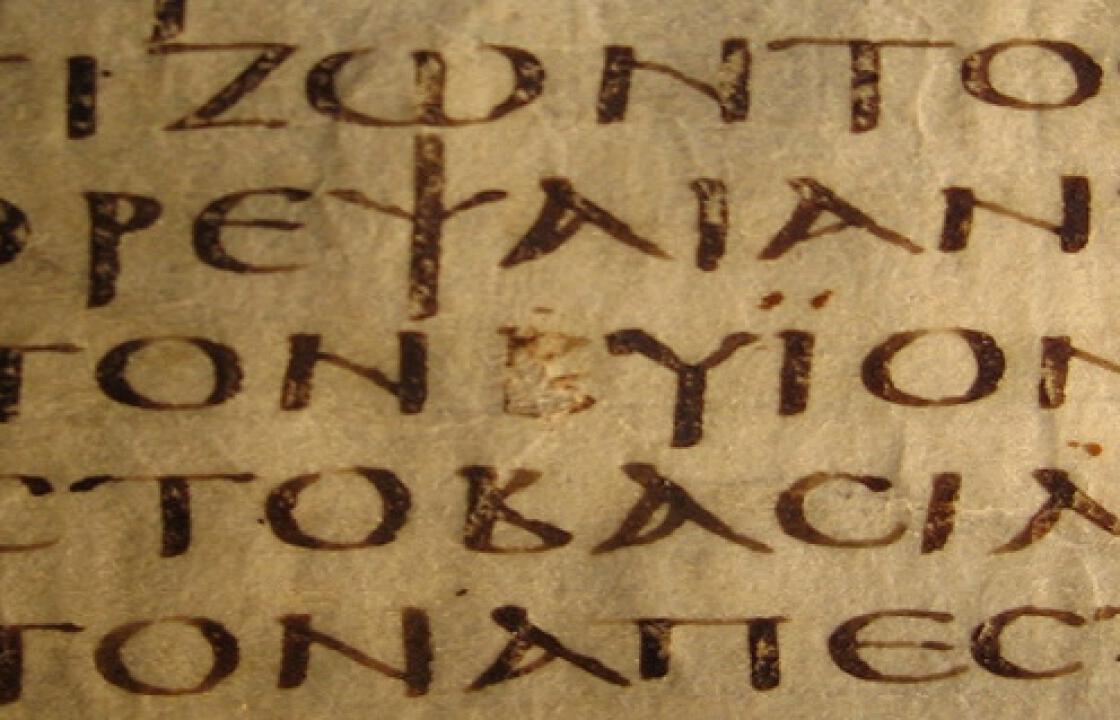 ΤΙΖΩΝΤΟ
ΡΡΕΨΑΙΑΝ
ΤΟΝ ΥΪΟΝ
ϹΤΟΒΑϹΙΛ
ΤΟΝΑΠΕϹΤ